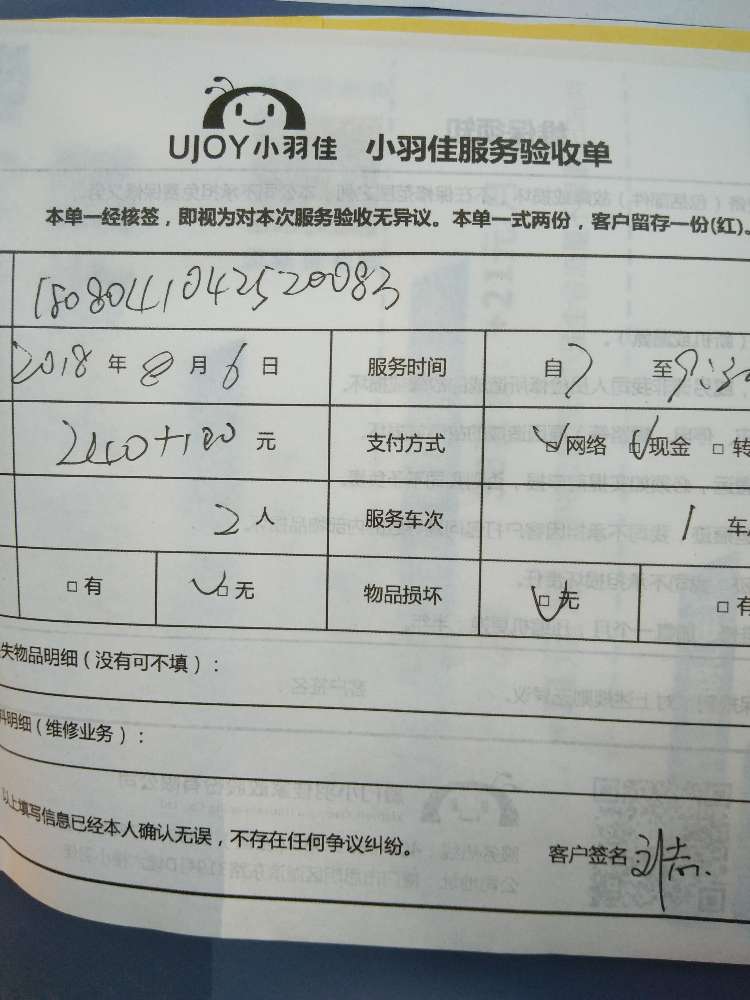 UJOY小羽佳 小羽佳服务验收单
本单一经核签，即视为对本次服务验收无异议。本单一式两份，客户留存一份(红)。
18080411042520083
2018年8月6日 服务时间 自7 至9:30
元 支付方式 网络 现金 □转
2人 服务车次 1车
□有 □无 物品损坏 □无 □有
失物品明细（没有可不填）：
料明细（维修业务）：
以上填写信息已经本人确认无误，不存在任何争议纠纷。 客户签名